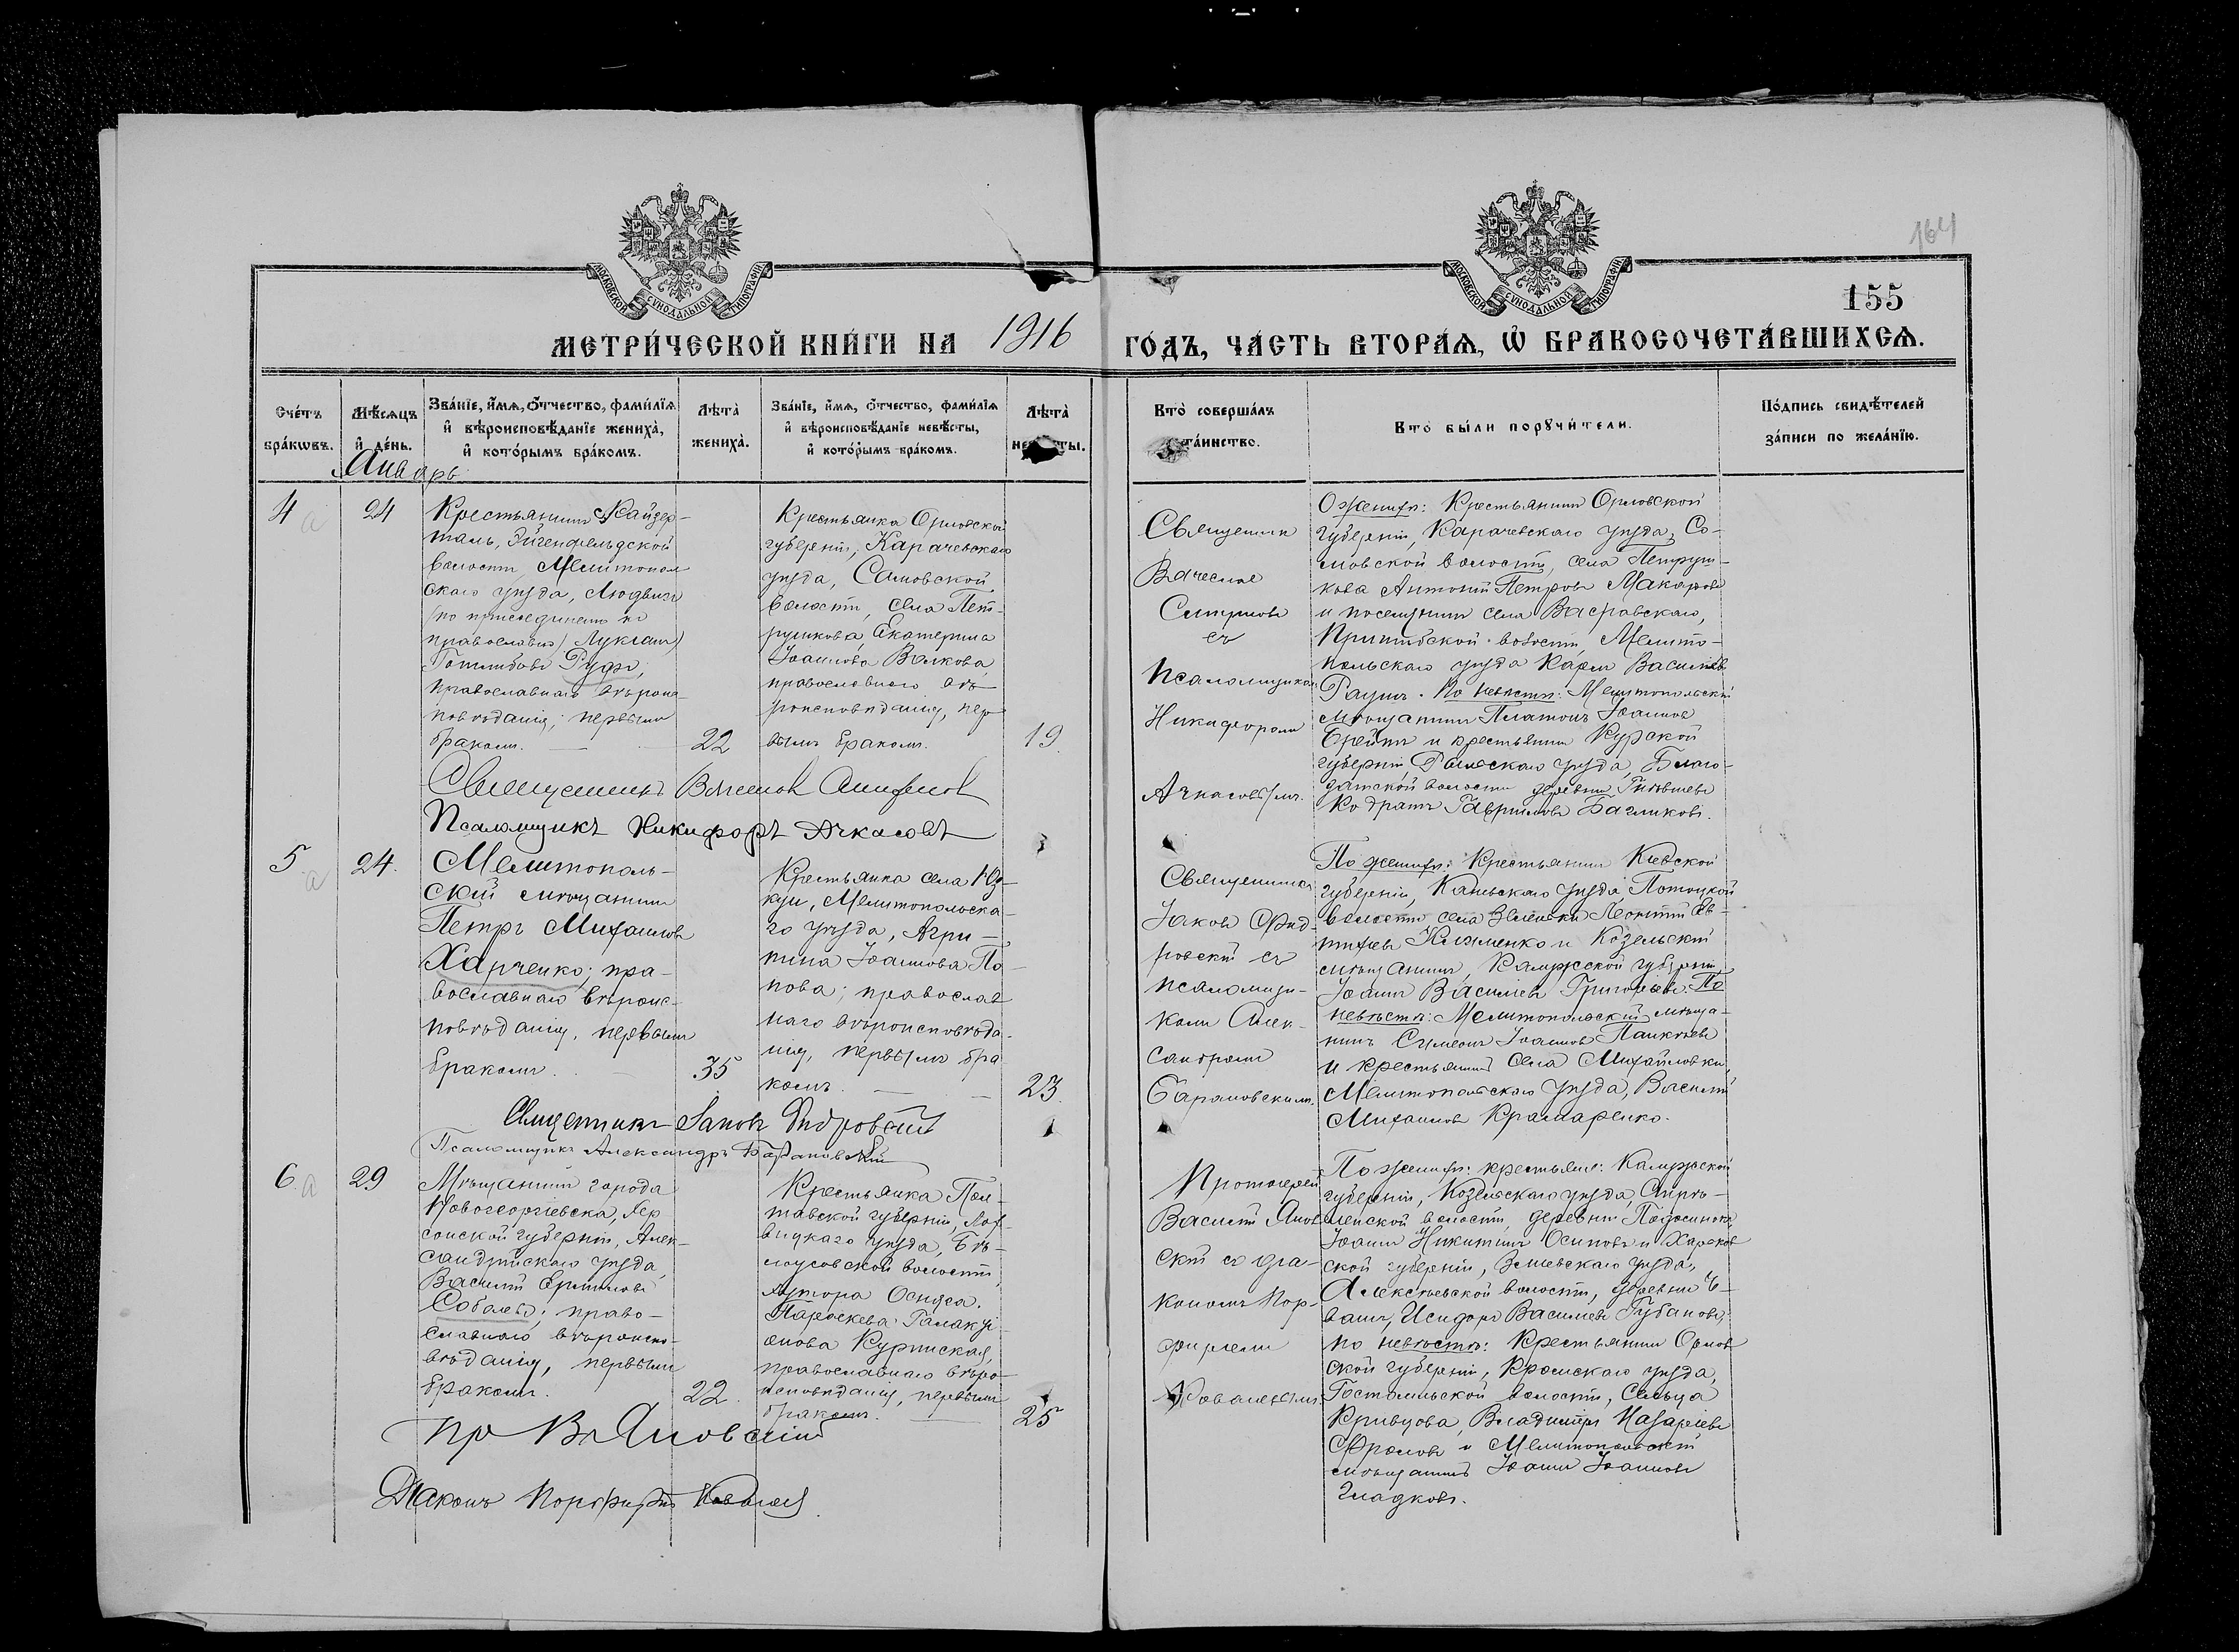 164
155
МОСКОВСКОЙ СѴНОДАЛЬНОЙ ТИПОГРАФІИ
МОСКОВСКОЙ СѴНОДАЛЬНОЙ ТИПОГРАФІИ
МЕТРИ́ЧЕСКОЙ КНИ́ГИ НА 1916 ГО́ДЪ, ЧА́СТЬ ВТОРА́Ѧ, Ѽ БРАКОСОЧЕТА́ВШИХСѦ.
Сче́тъ бра́кѡвъ.
Мѣ́сяцъ и҆ де́нь.
Зва́нїе, и҆́мѧ, ѻ҆́тчество, фами́лїѧ
и҆ вѣроисповѣ́данїе жениха̀,
и҆ кото́рымъ бра́комъ.
Лѣ́та жениха̀.
Зва́нїе, и҆́мѧ, ѻ҆́тчество, фами́лїѧ
и҆ вѣроисповѣ́данїе невѣ́сты,
и҆ кото́рымъ бра́комъ.
Лѣ́та
Кто̀ соверша́лъ та́инство.
Кто̀ бы́ли порꙋчи́тели.
По́дпись свидѣ́телей
за́писи по жела́нїю.
Январь
4
24
Крестьянинъ с. Кайзер-
таль, Эйгенфельдской
волости, Мелитополь
скаго уѣзда, Людвигъ
(по присоединенію къ
православію Лукіанъ)
Готлибовъ Руфъ,
православнаго вѣроис-
повѣданія, первымъ
бракомъ.
22
Крестьянка Орловской
губерніи, Карачевскаго
уѣзда, Самовской
волости, села Пет-
рушкова, Екатерина
Іоаннова Волкова,
православнаго вѣ-
роисповѣданія, пер
вымъ бракомъ.
19
Священникъ
Вячеславъ
съ
Псаломщикомъ
Никифоромъ
Ачкасовымъ.
О женихѣ: Крестьянинъ Орловской
губерніи, Карачевскаго уѣзда, Со-
мовской волости, села Петруш-
кова Антоній Петровъ Макаровъ
и поселянинъ села
Пришибской волости, Мелито-
польскаго уѣзда Карлъ Васильевъ
По невѣстѣ: Мелитопольскій
мѣщанинъ Платонъ Іоанновъ
и крестьянинъ Курской
губерніи, уѣзда, Благо-
датской волости деревни
Кодратъ Гавриловъ
Священникъ Вячеславъ
Псаломщикъ Никифоръ Ачкасовъ
5
24.
Мелитополь-
скій мѣщанинъ
Петръ Михаиловъ
Харченко; пра-
вославнаго вѣроис-
повѣданія, первымъ
бракомъ.
35
Крестьянка села Юз-
куи, Мелитопольска-
го уѣзда, Агрип-
пина Іоаннова По-
пова; православ
наго вѣроисповѣда
нія, первымъ бра
комъ.
23.
Священникъ
Іаковъ Фид-
ровскій съ
псаломщи-
комъ Алек-
сандромъ
Барановскимъ.
По женихѣ: Крестьянинъ Кіевской
губерніи, Каневскаго уѣзда, Потоцкой
волости села Леонтій Ев-
тихіевъ и Козельскій
мѣщанинъ, Калужской губерніи
Іоаннъ Василіевъ Григорьевъ. По
невѣстѣ: Мелитопольскій мѣща-
нинъ Симеонъ Іоанновъ
и крестьянинъ села Михайловки,
Мелитопольскаго уѣзда, Василій
Михаиловъ Крамаренко.
Священникъ Іаковъ Фидровскій
Псаломщикъ Александръ Барановскій
6
29
Мѣщанинъ города
Новогеоргіевска, Хер
сонской губерніи, Алек-
сандрійскаго уѣзда,
Василій Ермиловъ
Соболевъ; право-
славнаго вѣроиспо-
вѣданія, первымъ
бракомъ.
22.
Крестьянка Пол-
тавской губерніи, Лох-
вицкаго уѣзда, Бѣ-
лоусовской волости,
хутора Осняга.
Параскева Галакті-
онова Куринская,
православнаго вѣро-
исповѣданія, первымъ
бракомъ.
25
Протоіерей
Василій Янов
скій съ діа-
кономъ Пор-
фиріемъ
Ковалевымъ
По женихѣ: крестьяне: Калужской
губерніи, Козельскаго уѣзда,
волости, деревни
Іоаннъ Никитинъ Осиповъ и Харьков
ской губерніи, Зміевскаго уѣзда,
Алексѣевской волости, деревни
Исидоръ Васильевъ Губановъ;
по невѣстѣ: Крестьянинъ Орлов
ской губерніи, Кромскаго уѣзда,
Гостомльской волости, сельца
Кривцова, Владиміръ Назаріевъ
Фроловъ и Мелитопольскій
мѣщанинъ Іоаннъ Іоанновъ
Гладковъ.
Пр Вл Яновскій
Діаконъ Порфирій Ковалевъ